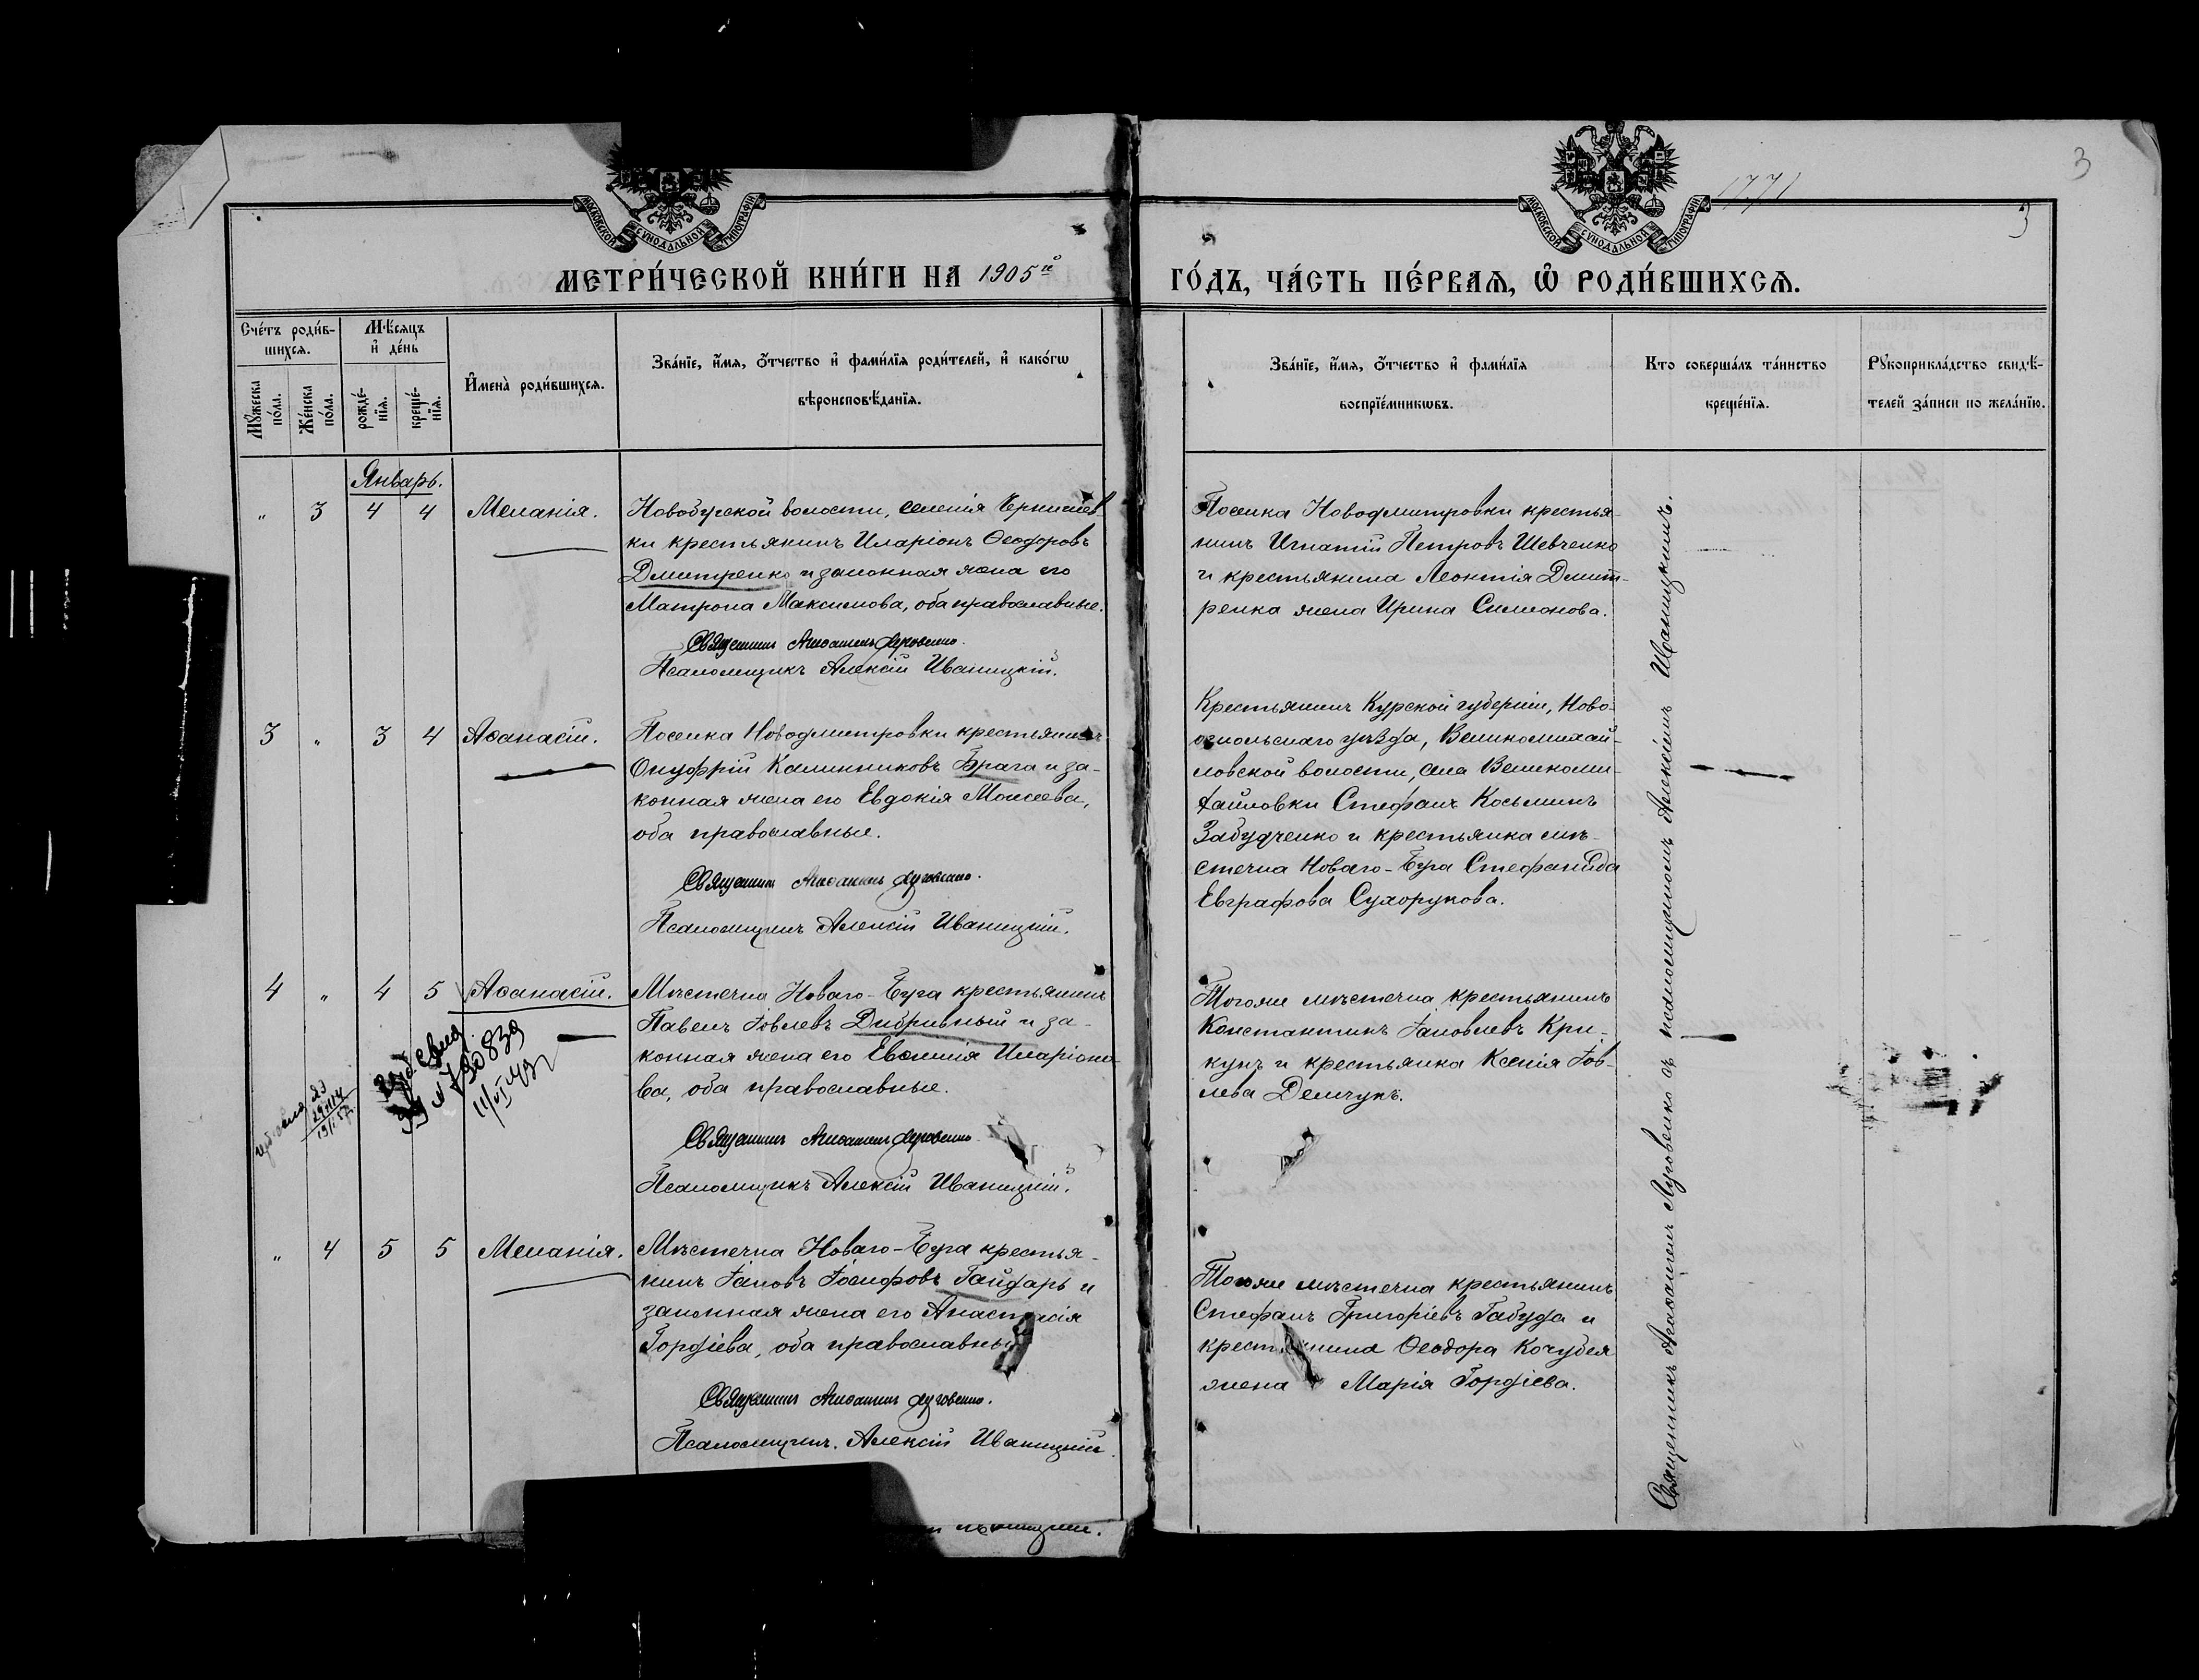 3
1771
3
МОСКОВСКОЙ СѴНОДАЛЬНОЙ ТИПОГРАФІИ
МОСКОВСКОЙ СѴНОДАЛЬНОЙ ТИПОГРАФІИ
МЕТРИ́ЧЕСКОЙ КНИ́ГИ НА 1905й
ГО́ДЪ, ЧА́СТЬ ПЕ́РВАЯ, Ѽ РОДИ́ВШИХСЯ.
Сче́тъ роди́в-
шихся.
Мѣ́сяцъ
и҆ де́нь
Мꙋ́жеска
по́ла.
Же́нска
по́ла.
рожде́-
нїя.
креще́-
нїя.
И҆мена̀ роди́вшихся.
Зва́нїе, и҆́мя, ѻ҆́тчество и҆ фами́лїя роди́телей, и҆ како́гѡ
вѣроисповѣ́данїя.
Зва́нїе, и҆́мя, ѻ҆́тчество и҆ фами́лїя
воспрїе́мникѡвъ.
Кто соверша́лъ та́инство
креще́нїя.
Рꙋкоприкла́дство свидѣ́-
телей за́писи по жела́нїю.
Январь.
" 3 4 4 Меланія.
Новобугской волости, селенія Чернигов
ки крестьянинъ Иларіонъ Ѳеодоровъ
Дмитренко и законная жена его
Матрона Максимова, оба православные.
Священникъ Агаѳангелъ Луговенко.
Псаломщикъ Алексій Иваницкій.
Поселка Новодмитровки крестья-
нинъ Игнатій Петровъ Шевченко
и крестьянина Леонтія Дмит-
ренка жена Ирина Симонова.
3 " 3 4 Аѳанасій.
Поселка Новодмитровки крестьянинъ
Онуфрій Калинниковъ Брага и за-
конная жена его Евдокія Моисеева,
оба православные.
Священникъ Агаѳангелъ Луговенко.
Псаломщикъ Алексій Иваницкій.
Крестьянинъ Курской губерніи, Ново-
оскольскаго уѣзда, Великомихай-
ловской волости, села Великоми-
хайловки Стефанъ Косьминъ
Забудченко и крестьянка мѣ-
стечка Новаго-Буга Стефанида
Евграфова Сухорукова.
4 " 4 5 Аѳанасій.
Мѣстечка Новаго-Буга крестьянинъ
Павелъ Іовлевъ Дибривный и за-
конная жена его Евѳимія Иларіоно-
ва, оба православные.
Священникъ Агаѳангелъ Луговенко.
Псаломщикъ Алексій Иваницкій.
Тогоже мѣстечка крестьянинъ
Константинъ Іаковлевъ Кри-
кунъ и крестьянка Ксенія Іов-
лева Демчукъ.
" 4 5 5 Меланія.
Мѣстечка Новаго-Буга крестья-
нинъ Іаковъ Іосифовъ Гайдарь и
законная жена его Анастасія
Гордіева, оба православные
Священникъ Агаѳангелъ Луговенко.
Псаломщикъ Алексій Иваницкій.
Тогоже мѣстечка крестьянинъ
Стефанъ Григоріевъ Габуда и
крестьянина Ѳеодора Кочубея
жена Марія Гордіева.
Священникъ Агаѳангелъ Луговенко съ псаломщикомъ Алексіемъ Иваницкимъ.